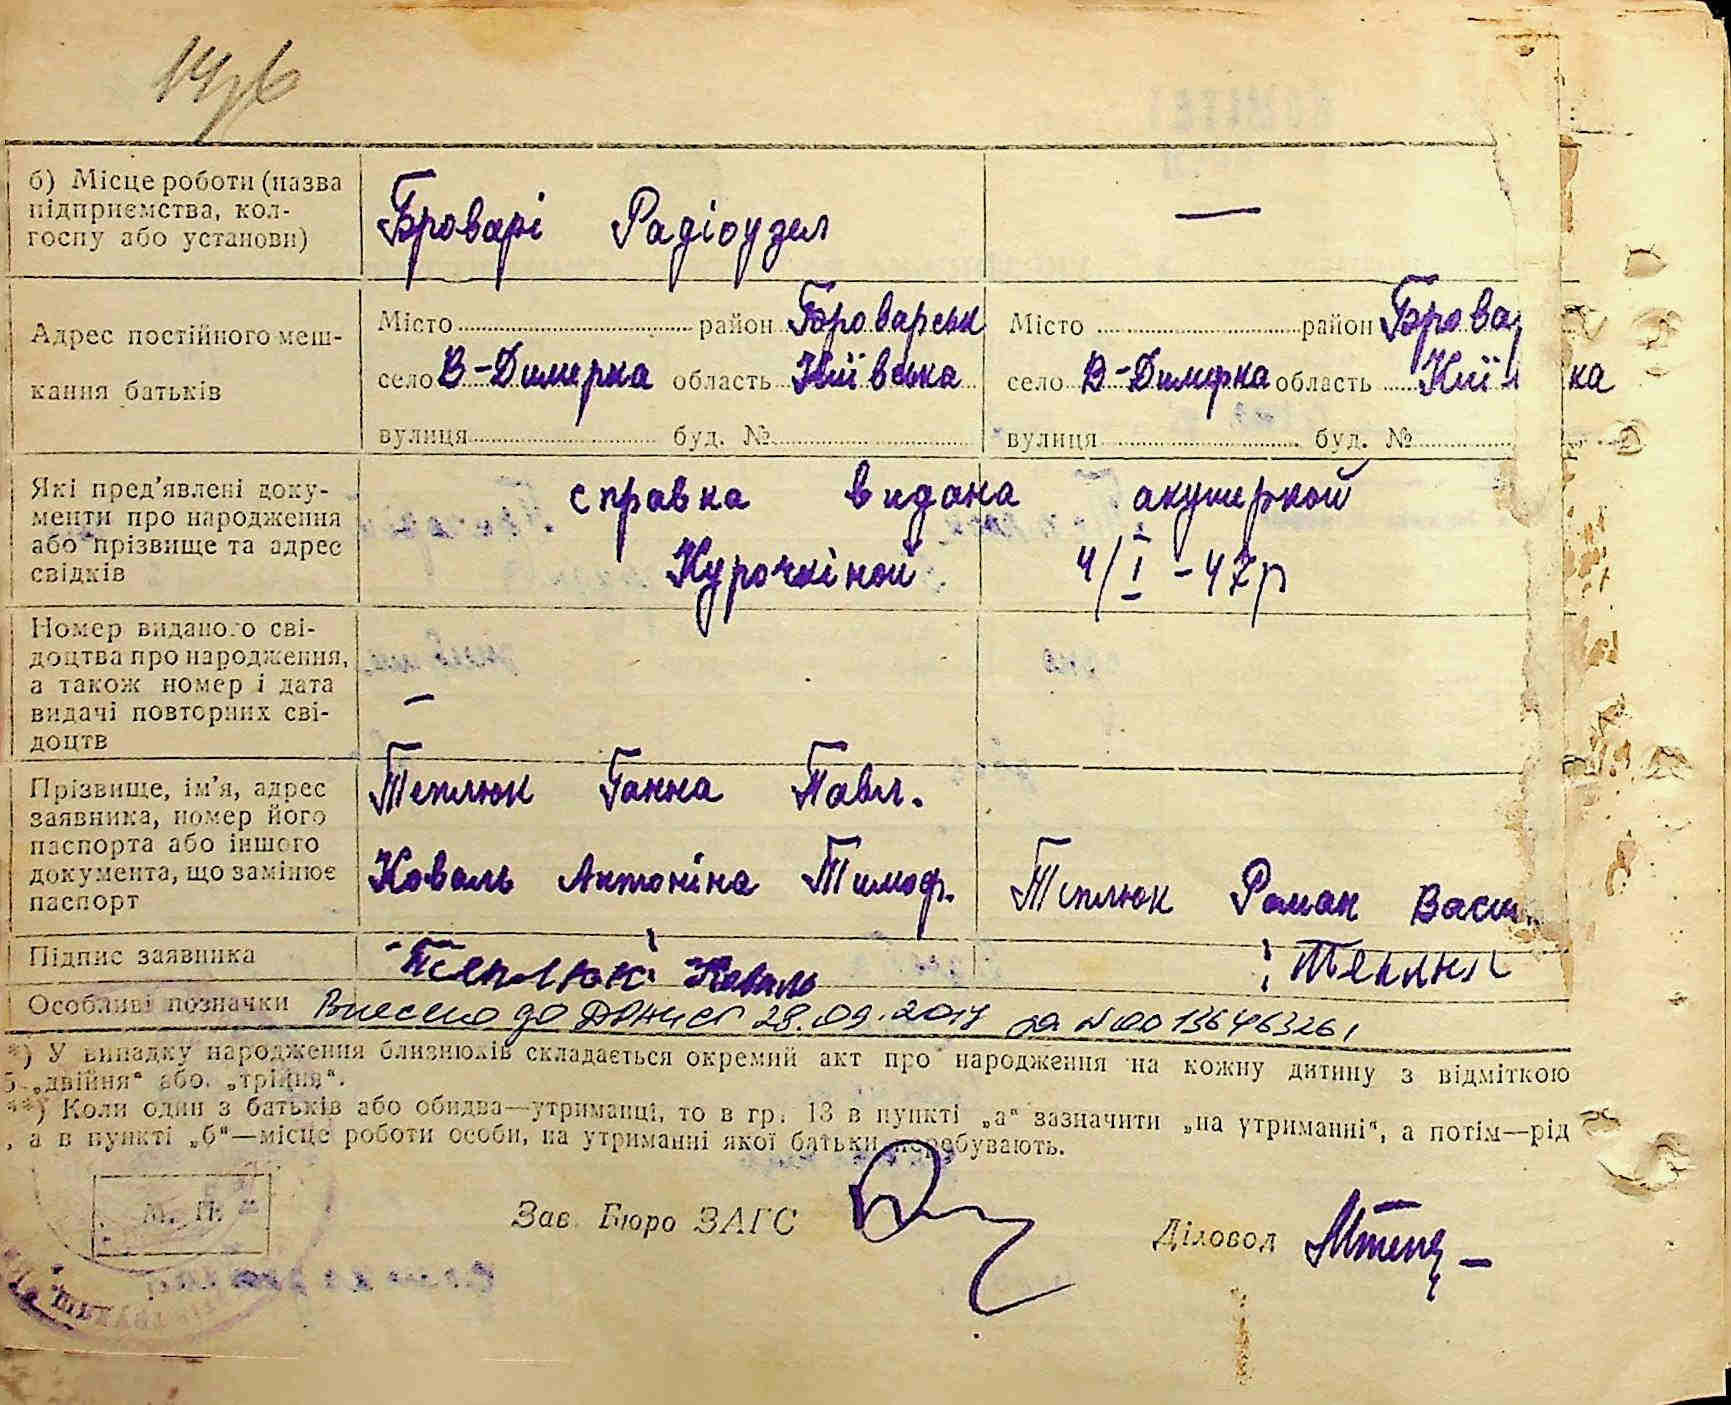 14/6
б) Місце роботи (назва
підприємства, кол-
госпу або установи)
Броварі Радіоузел
—
Адрес постійного меш-
кання батьків
Місто район Броварськ
село В-Димерка область Київська
вулиця буд. №
Місто район Бровар
село В-Димерка область Київ ка
вулиця буд. №
Які пред'явлені доку-
менти про народження
або прізвище та адрес
свідків
справка видана акушеркой
Курочкіной 4/I-47р
Номер виданого сві-
доцтва про народження,
а також номер і дата
видачі повторних сві-
доцтв
—
Прізвище, ім'я, адрес
заявника, номер його
паспорта або іншого
документа, що замінює
паспорт
Теплюк Ганна Павл.
Коваль Антоніна Тимоф.
Теплюк Роман Васи
Підпис заявника
Теплюк Коваль
Теплюк
Особливі позначки Внесено до ДРАЦСГ 28.09.2017 за №00136463261
*) У випадку народження близнюків складається окремий акт про народження на кожну дитину з відміткою
„двійня“ або „трійня“.
**) Коли один з батьків або обидва—утриманці, то в гр. 13 в пункті „а“ зазначити „на утриманні“, а потім—рід
, а в пункті „б“—місце роботи особи, на утриманні якої батьки перебувають.
М. П.
Зав. Бюро ЗАГС
Діловод